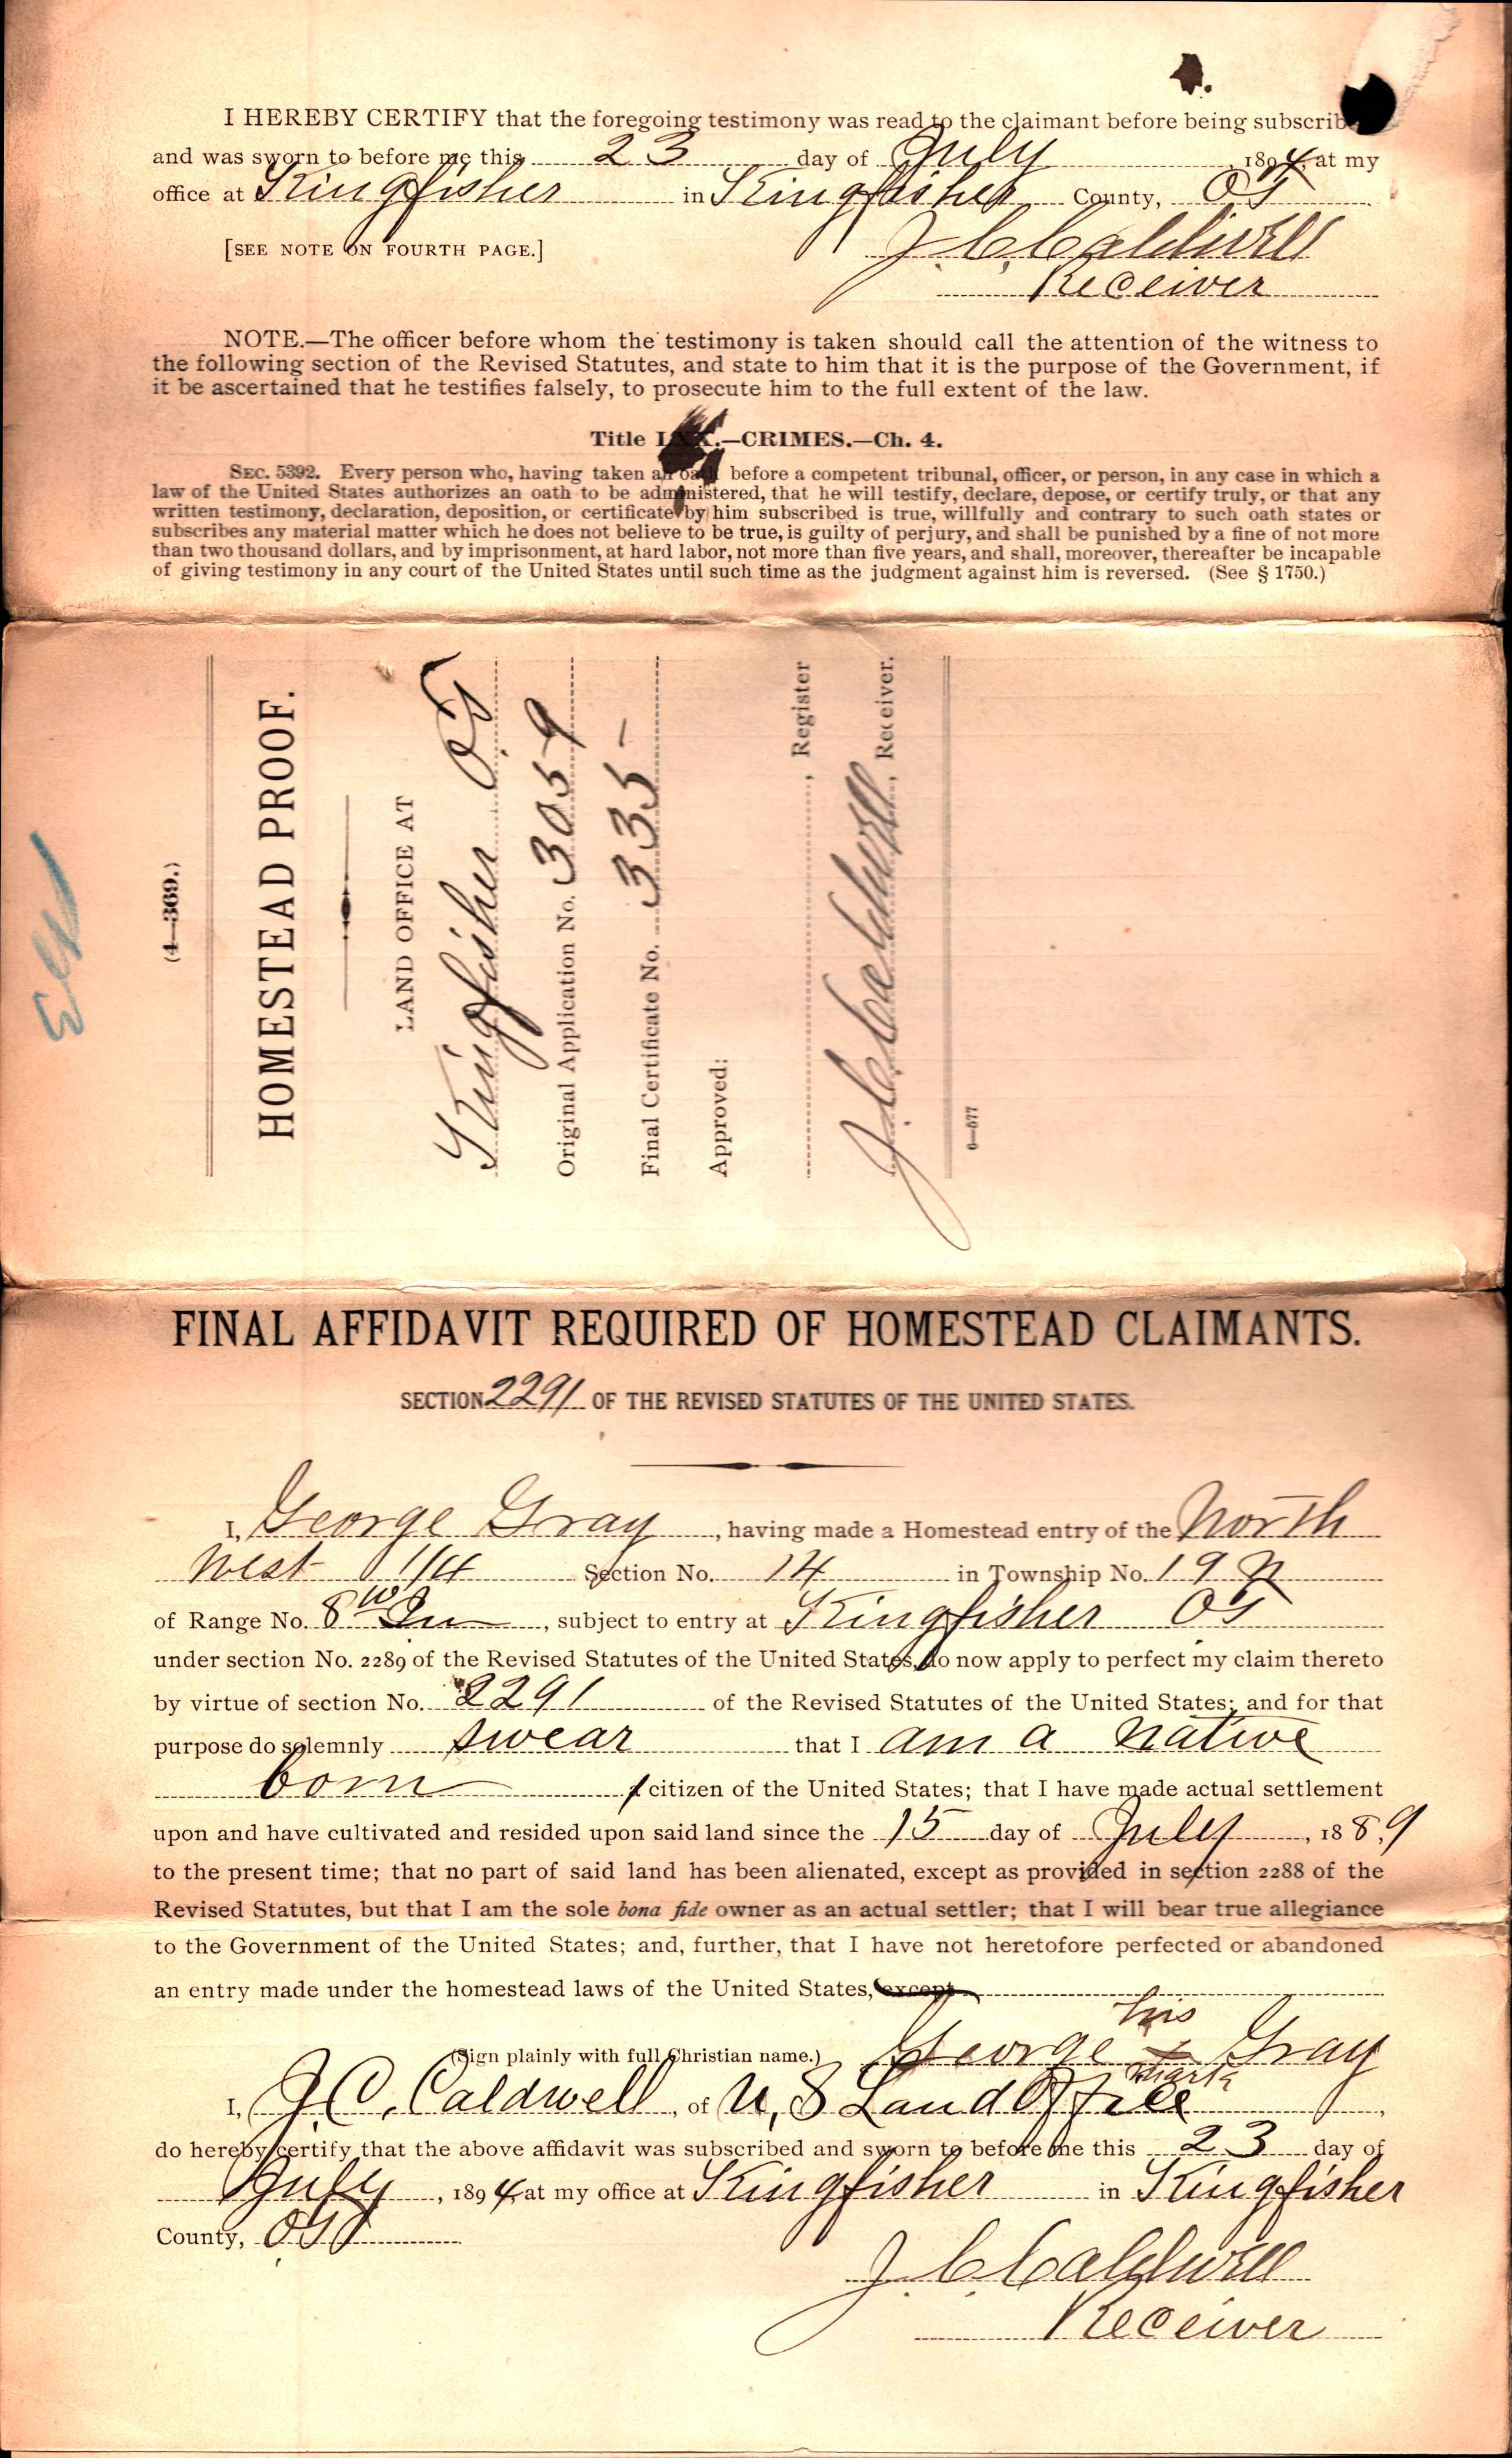 I HEREBY CERTIFY that the foregoing testimony was read to the claimant before being subscrib
and was sworn to before me this 23 day of July, 1894, at my
office at Kingfisher in Kingfisher County, OT
[SEE NOTE ON FOURTH PAGE.] J. C. Caldwell
Receiver
NOTE.—The officer before whom the testimony is taken should call the attention of the witness to
the following section of the Revised Statutes, and state to him that it is the purpose of the Government, if
it be ascertained that he testifies falsely, to prosecute him to the full extent of the law.
Title LXX.—CRIMES.—Ch. 4.
SEC. 5392. Every person who, having taken an oath before a competent tribunal, officer, or person, in any case in which a
law of the United States authorizes an oath to be administered, that he will testify, declare, depose, or certify truly, or that any
written testimony, declaration, deposition, or certificate by him subscribed is true, willfully and contrary to such oath states or
subscribes any material matter which he does not believe to be true, is guilty of perjury, and shall be punished by a fine of not more
than two thousand dollars, and by imprisonment, at hard labor, not more than five years, and shall, moreover, thereafter be incapable
of giving testimony in any court of the United States until such time as the judgment against him is reversed. (See § 1750.)
(4—369.)
HOMESTEAD PROOF.
LAND OFFICE AT
Kingfisher O.T
Original Application No. 3059
Final Certificate No. 335-
Approved:
, Register
J. C. Caldwell, Receiver.
6—577
FINAL AFFIDAVIT REQUIRED OF HOMESTEAD CLAIMANTS.
SECTION 2291 OF THE REVISED STATUTES OF THE UNITED STATES.
I, George Gray, having made a Homestead entry of the North
West 1/4 Section No. 14 in Township No. 19 N
of Range No. 8 W Im, subject to entry at Kingfisher OT
under section No. 2289 of the Revised Statutes of the United States, do now apply to perfect my claim thereto
by virtue of section No. 2291 of the Revised Statutes of the United States; and for that
purpose do solemnly swear that I am a native
born citizen of the United States; that I have made actual settlement
upon and have cultivated and resided upon said land since the 15 day of July, 188.9
to the present time; that no part of said land has been alienated, except as provided in section 2288 of the
Revised Statutes, but that I am the sole bona fide owner as an actual settler; that I will bear true allegiance
to the Government of the United States; and, further, that I have not heretofore perfected or abandoned
an entry made under the homestead laws of the United States, except
his
(Sign plainly with full Christian name.) George x Gray
mark
I, J. C. Caldwell, of U, S Land Office,
do hereby certify that the above affidavit was subscribed and sworn to before me this 23 day of
July, 1894, at my office at Kingfisher in Kingfisher
County, OT
J. C. Caldwell
Receiver